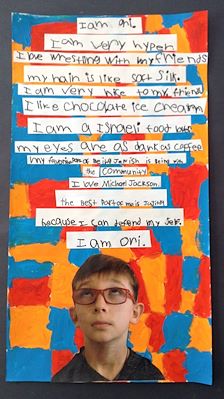 I am Ori.
I am very hyper
I love wresting with my friends
my hair is like soft silk.
I am very nice to my friends
I like chocolate ice cream
I am a Israeli food lover
my eyes are as dark as coffee
my favorite part of being Jewish is being with
the community
I love Michael Jackson.
the best part of me is Jujitsu
because I can defend my self.
I am Ori.